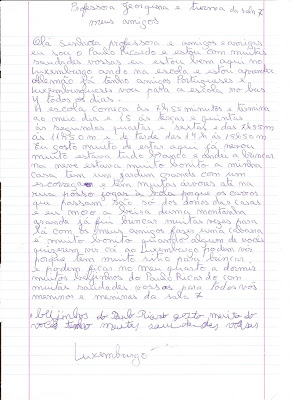 Professora Georgina e turma da sala 7
meus amigos
Olá senhora professora e amigos e amigas
eu sou o Paulo Ricardo e estou com muitas
saudades vossas eu estou bem aqui no
Luxemburgo ando na escola e estou aprender
alemão já tenho amigos Portugueses e
Luxemburgueses vou para a escola no bus
4 todos os dias.
A escola começa às 7h55 minutos e termina
ao meio dia e 15 às terças e quintas
às segundas quartas e sextas é das 7h55m
às 11h50m e de tarde das 14h às 15h50m
Eu gosto muito de estar aqui já nevou
muito estava tudo branco e andei a brincar
na neve estava muito bonito a minha
casa tem um jardim grande com um
escorrega e têm muitas árvores até na
rua posso jogar à bola porque os carros
que passam são só dos donos das casas
e eu moro a beira duma montanha
grande já fui brincar muitas vezes para
lá com os meus amigos fazer uma cabana
é muito bonito quando algum de vocês
quiserem vir cá ao Luxemburgo podem vir
porque tem muito sítio para brincar,
e podem ficar no meu quarto a dormir
muitos beijinhos do Paulo Ricardo com
muitas saudades vossas para todos vós
meninos e meninas da sala 7
beijinhos do Paulo Ricardo gosto muito de
vocês tenho muitas saudades vossas
Luxemburgo